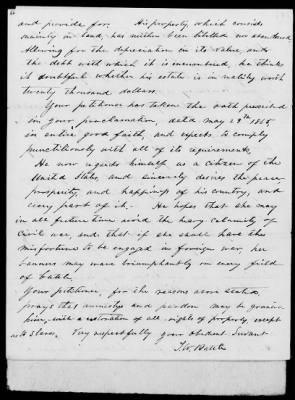 and provide for. His property, which consists
mainly in land, has neither been libelled nor abandoned.
Allowing for the depreciation in its value, and
the debt with which it is incumbered, he thinks
it doubtful whether his estate is in reality worth
twenty thousand dollars.
Your petitioner has taken the oath prescribed
in your proclamation, dated May 29th 1865
in entire good faith, and expects to comply
punctiliously with all of its requirements.
He now regards himself as a citizen of the
United States, and sincerely desires the peace
prosperity, and happiness of his country, and
every part of it. He hopes that she may
in all future time avoid the heavy calamity of
Civil war, and that if she shall have the
misfortune to be engaged in foreign war, her
banners may wave triumphantly on every field
of battle.
Your petitioner, for the reasons above stated
prays that amnesty and pardon may be granted
him, with a restoration of all rights of property, except
as to slaves. Very respectfully your Obedient Servant